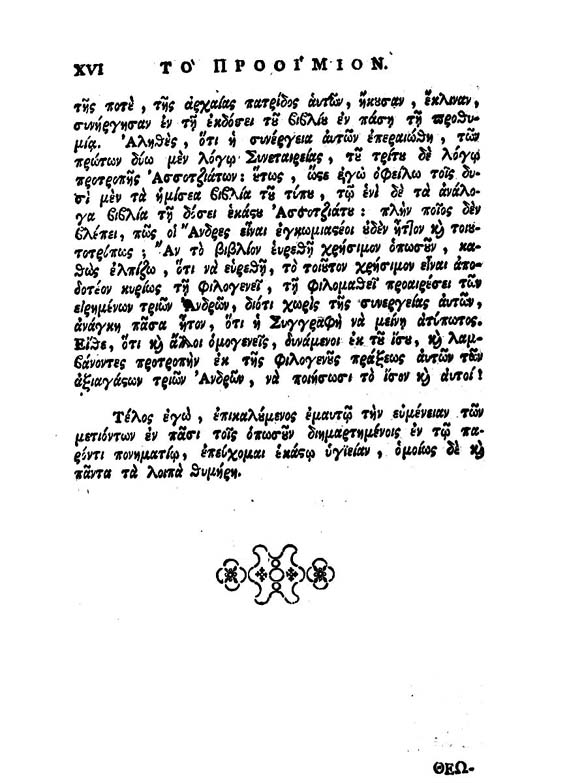 XVI ΤΟ ΠΡΟΟΙ΄ΜΙΟΝ.
τῆς ποτὲ, τῆς ἀρχαίας πατρίδος ἀυτῶν, ἤκȣσαν, ἔκλιναν,
συνήργησαν ἐν τῇ ἐκδόσει τȣ͂ βιβλίȣ ἐν πάσῃ τῇ προθυ-
μίᾳ. Ἀληθὲς, ὅτι ἡ συνέργεια ἀυτῶν ἐπεραιώθη, τῶν
πρώτων δύω μὲν λόγῳ Συνεταιρείας, τȣ͂ τρίτȣ δὲ λόγῳ
προτροπῆς Ἀσσοτζιάτων: ȣ̔́τως, ὥϛε ἐγὼ ὀφείλω τοῖς δυ-
σὶ μὲν τὰ ἡμίσεα βιβλία τȣ͂ τύπȣ, τῷ ἑνὶ δὲ τὰ ἀνάλο-
γα βιβλία τῇ δόσει ἑκάϛȣ Ἀσσοτζιάτȣ: πλὴν ποῖος δὲν
βλέπει, πῶς οἱ Ἄνδρες εἶναι ἐγκωμιαϛέοι ȣ̓δὲν ἧττον ϗ̀ τοιȣ-
τοτρόπως; Ἂν τὸ βιβλίον ἑυρεθῇ χρήσιμον ὁπωσȣ͂ν, κα-
θὼς ἐλπίζω, ὅτι νὰ ἑυρεθῇ, τὸ τοιοῦτον χρήσιμον εἶναι ἀπο-
δοτέον κυρίως τῇ φιλογενεῖ, τῇ φιλομαθεῖ προαιρέσει τῶν
εἰρημένων τριῶν Ἀνδρῶν, διότι χωρὶς τῆς συνεργείας ἀυτῶν,
ἀνάγκη πᾶσα ἦτον, ὅτι ἡ Συγγραφὴ νὰ μείνῃ ἀτύπωτος.
Εἴθε, ὅτι ϗ̀ ἄλλοι ὁμογενεῖς, δυνάμενοι ἐκ τȣ͂ ἴσȣ, ϗ̀ λαμ-
βάνοντες προτροπὴν ἐκ τῆς φιλογενοῦς πράξεως ἀυτῶν τῶν
ἀξιαγάϛων τριῶν Ἀνδρῶν, νὰ ποιήσωσι τὸ ἴσον ϗ̀ ἀυτοί!
Τέλος ἐγὼ, ἐπικαλȣ́μενος ἐμαυτῷ τὴν ἐυμένειαν τῶν
μετιόντων ἐν πᾶσι τοῖς ὁπωσȣ͂ν διημαρτημένοις ἐν τῷ πα-
ρόντι πονηματίῳ, ἐπεύχομαι ἑκάϛῳ ὑγιείαν, ὁμοίως δὲ ϗ̀
πάντα τὰ λοιπὰ θυμήρη.
ΘΕΩ-